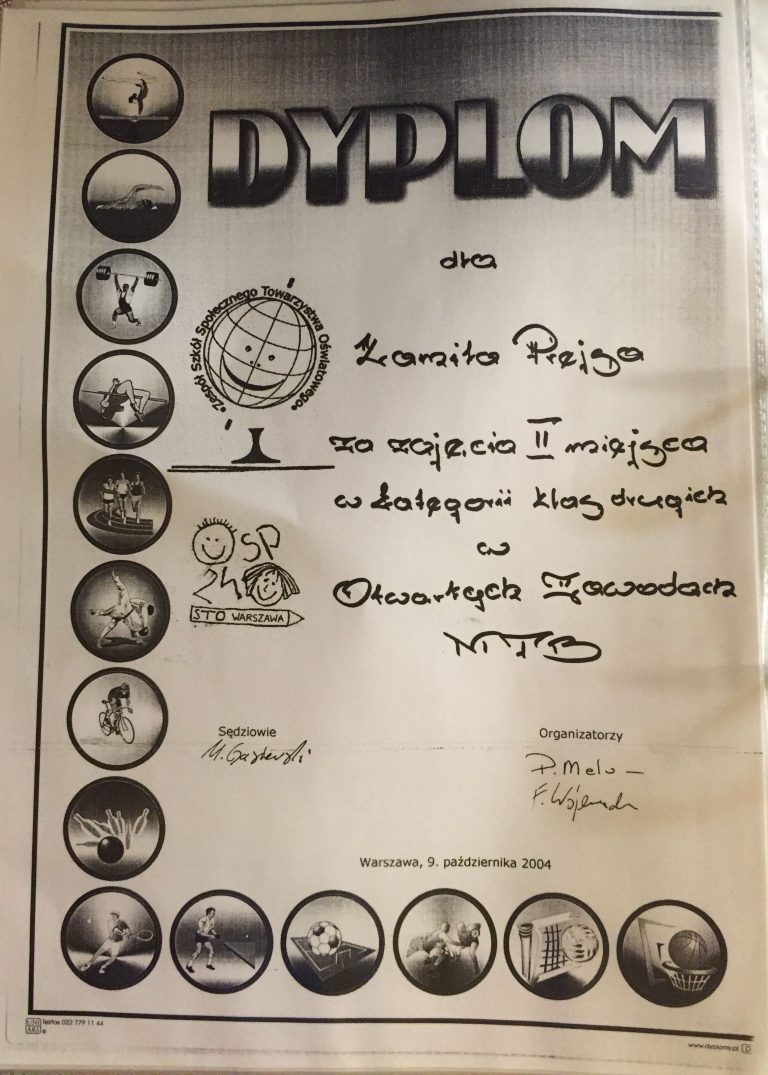 DYPLOM
dla
«Zespół Szkół Społecznego Towarzystwa Oświatowego»
Kamila Prejsa
za zajęcia II miejsca
w kategorii klas drugich
w
Otwartych Zawodach
MTB
SP
240
STO WARSZAWA
Sędziowie
Organizatorzy
P. Melu
Warszawa, 9. października 2004
UNI ARS
Telefax 022 779 11 44
www.dyplomy.pl